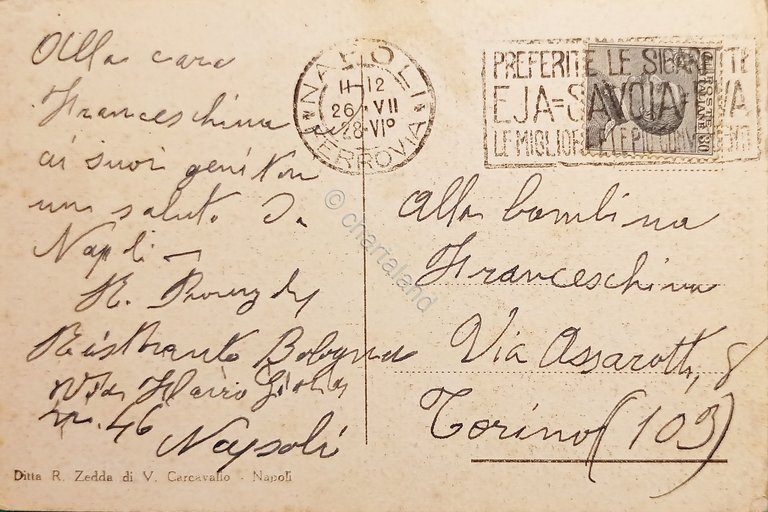 Alla cara
Franceschina
ai suoi genitori
un saluto da
Napoli —
Ristorante Bologna
Via Flavio Gioia
n. 46
Napoli
NAPOLI
11-12
26 VII
28-VI°
FERROVIA
PREFERITE LE SIGARETTE
EJA=SAVOIA=EVA
LE MIGLIORI E LE PIÙ CONVENIENTI
POSTE ITALIANE
30
Alla bambina
Franceschina
Via Assarotti, 8
Torino (103)
© chartaland
Ditta R. Zedda di V. Carcavallo - Napoli